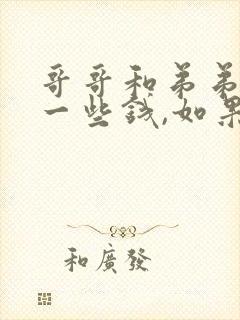 哥哥和弟弟
一些钱,如果
和廣發